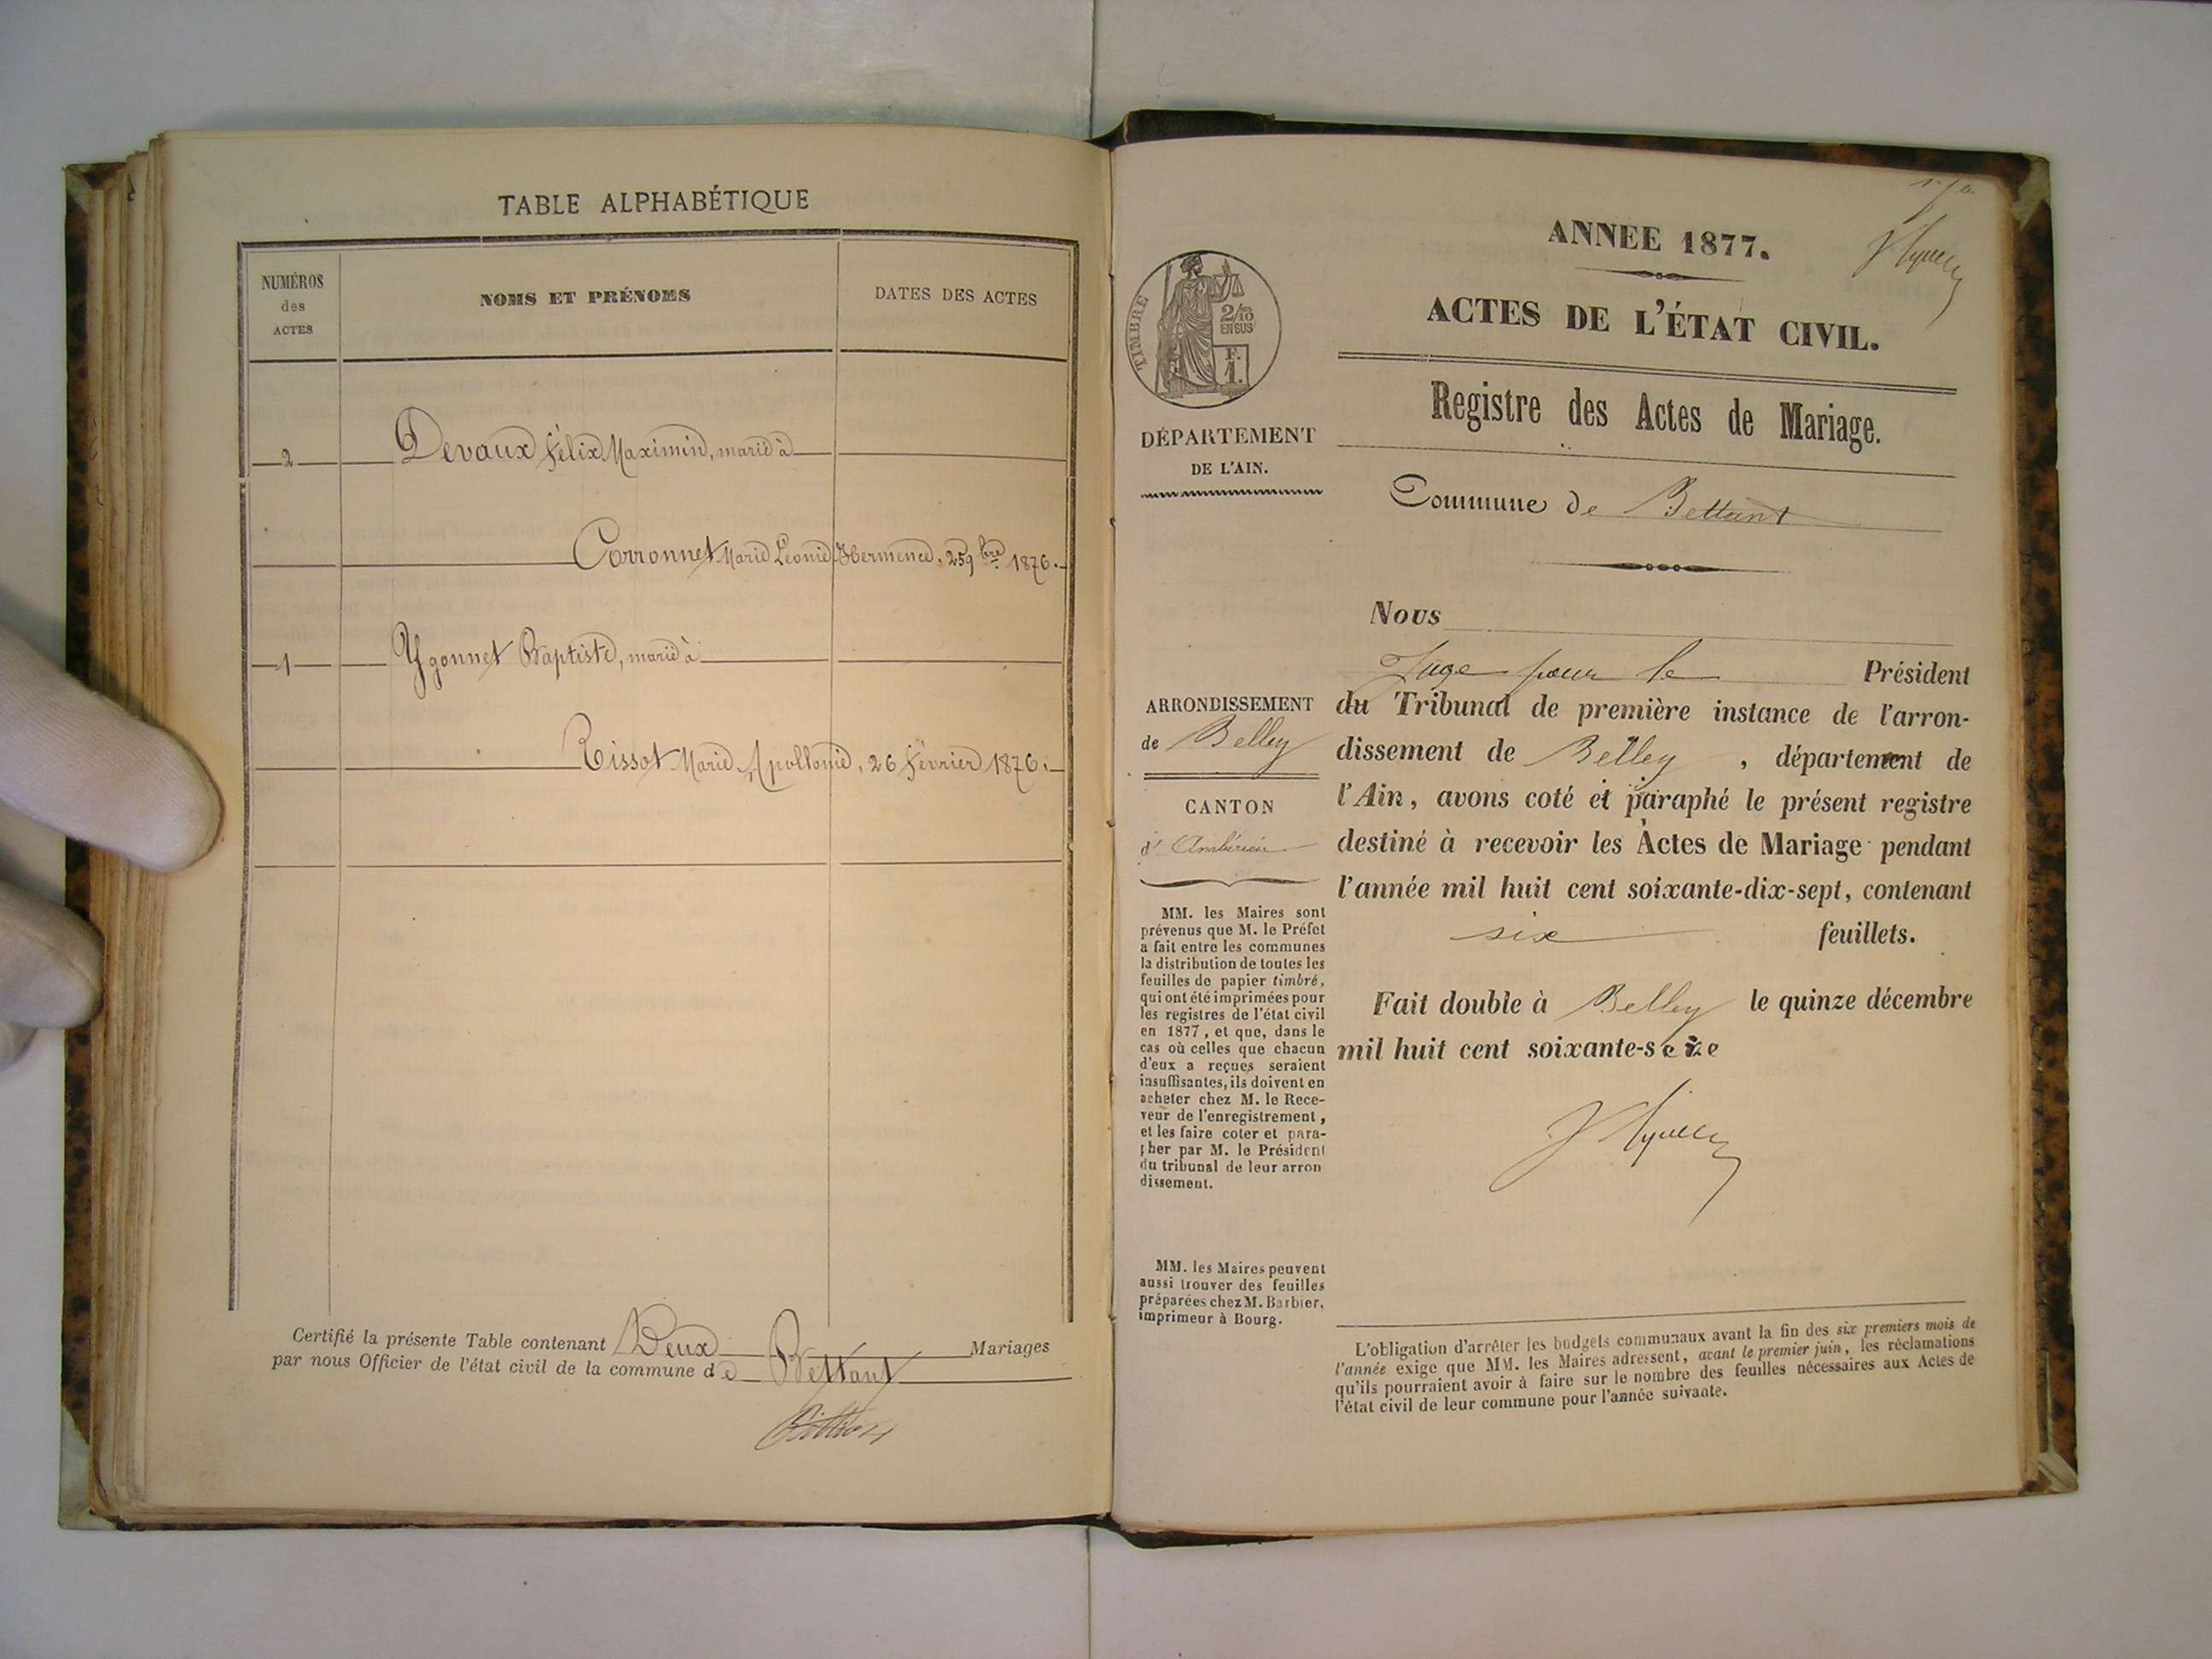 TABLE ALPHABÉTIQUE
NUMÉROS
des
ACTES
NOMS ET PRÉNOMS
DATES DES ACTES
2 Devaux Félix Maximin, marié à
Corronnet Marie Léonie Hermence, 25 9bre 1876.
1 Ygonnet Baptiste, marié à
Tissot Marie Apollonie, 26 Février 1876.
Certifié la présente Table contenant Deux Mariages
par nous Officier de l'état civil de la commune de Bettant
ANNEE 1877.
ACTES DE L'ÉTAT CIVIL.
Registre des Actes de Mariage.
Commune de Bettant
TIMBRE
2/10
EN SUS
F.
1.
DÉPARTEMENT
DE L'AIN.
ARRONDISSEMENT
de Belley
CANTON
d'Ambérieu
MM. les Maires sont
prévenus que M. le Préfet
a fait entre les communes
la distribution de toutes les
feuilles de papier timbré,
qui ont été imprimées pour
les registres de l'état civil
en 1877, et que, dans le
cas où celles que chacun
d'eux a reçues seraient
insuffisantes, ils doivent en
acheter chez M. le Rece-
veur de l'enregistrement,
et les faire coter et para-
pher par M. le Président
du tribunal de leur arron
dissement.
MM. les Maires peuvent
aussi trouver des feuilles
préparées chez M. Barbier,
imprimeur à Bourg.
Nous
Juge pour le Président
du Tribunal de première instance de l'arron-
dissement de Belley, département de
l'Ain, avons coté et paraphé le présent registre
destiné à recevoir les Actes de Mariage pendant
l'année mil huit cent soixante-dix-sept, contenant
six feuillets.
Fait double à Belley le quinze décembre
mil huit cent soixante-seize
L'obligation d'arrêter les budgets communaux avant la fin des six premiers mois de
l'année exige que MM. les Maires adressent, avant le premier juin, les réclamations
qu'ils pourraient avoir à faire sur le nombre des feuilles nécessaires aux Actes de
l'état civil de leur commune pour l'année suivante.